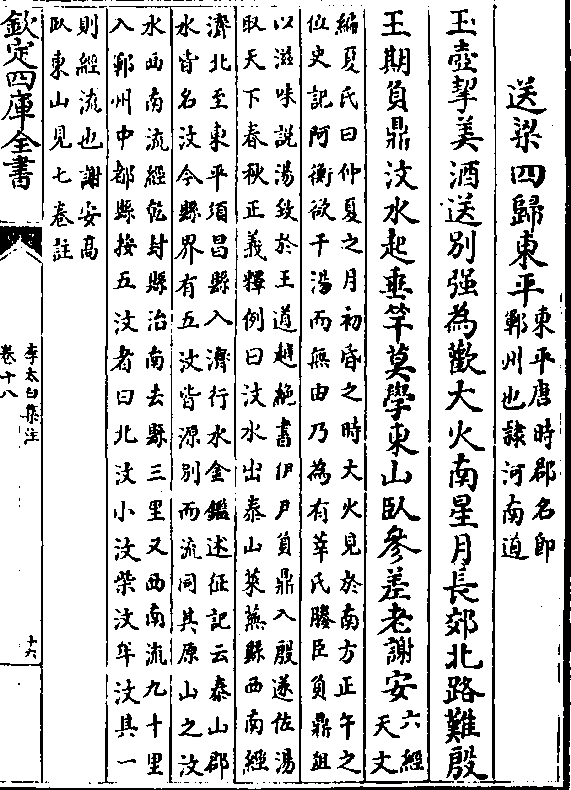 送梁四歸東平 東平唐時郡名即
鄆州也隸河南道
玉壺挈美酒送别强為歡大火南星月長郊北路難殷
王期負鼎汶水起垂竿莫學東山臥參差老謝安 六經
天文
編夏氏曰仲夏之月初昏之時大火見於南方正午之
位史記阿衡欲干湯而無由乃為有莘氏媵臣負鼎俎
以滋味說湯致於王道越絶書伊尹負鼎入殷遂佐湯
取天下春秋正義釋例曰汶水出泰山萊蕪縣西南經
濟北至東平須昌縣入濟行水金鑑述征記云泰山郡
水皆名汶今縣界有五汶皆源别而流同其原山之汶
水西南流經乾封縣治南去縣三里又西南流九十里
入鄆州中都縣按五汶者曰北汶小汶柴汶牟汶其一
則經流也謝安高
臥東山見七卷註
欽定四庫全書
李太白集注
卷十八
十六